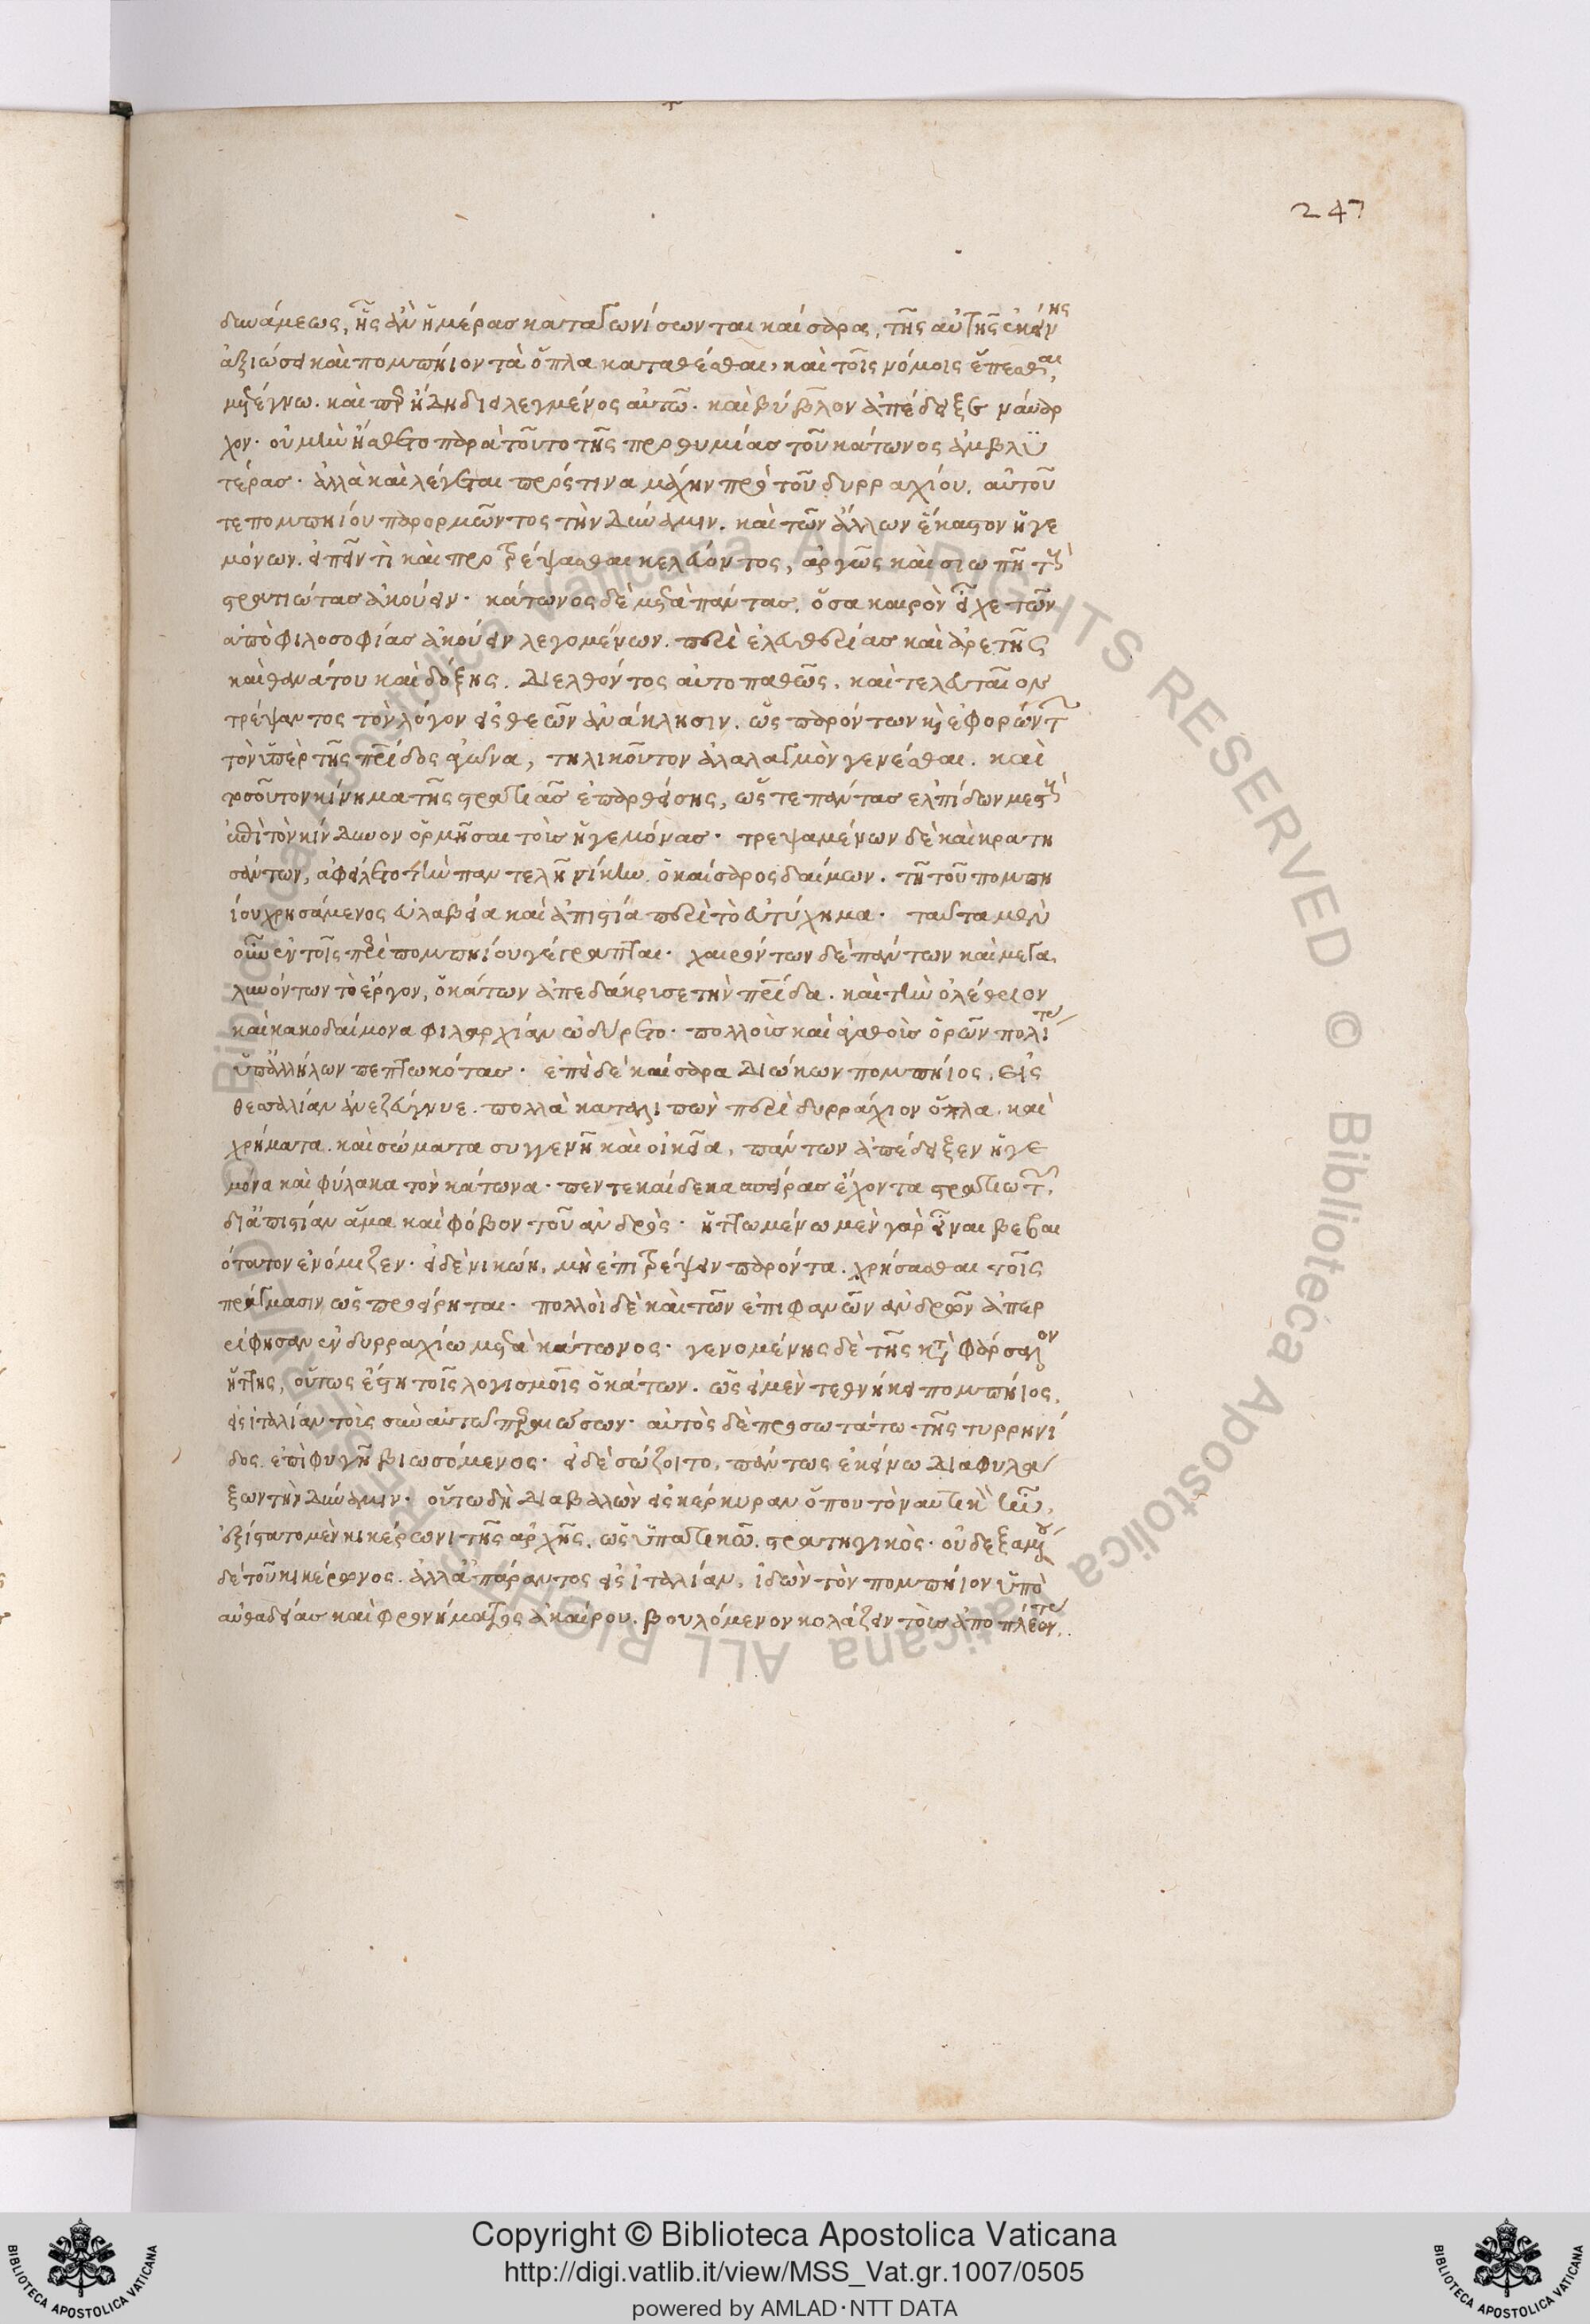 247
δυνάμεως, ἧς ἂν ἡμέρας καταγωνίσωνται καίσαρα, τῆς αὐτῆς ἐκείνης
ἀξιώσει καὶ πομπήιον τὰ ὅπλα καταθέσθαι, καὶ τοῖς νόμοις ἕπεσθαι,
μετέγνω. καὶ περ ἤδη διειλεγμένος αὐτῶ. καὶ βύβλον ἀπέδειξε ναύαρ
χον. οὐ μὴν ἤσθετο παρὰ τοῦτο τῆς προθυμίας τοῦ κάτωνος ἀμβλυ
τέρας. ἀλλὰ καὶ λέγεται πρός τινα μάχην πρὸ τοῦ δυρραχίου, αὐτοῦ
τε πομπηίου παρορμῶντος τὴν δύναμιν. καὶ τῶν ἄλλων ἕκαστον ἡγε
μόνων. εἰπεῖν τὶ καὶ προτρέψασθαι κελεύοντος, ἀργῶς καὶ σιωπῆ τοὺς
στρατιώτας ἀκούειν. κάτωνος δὲ μετὰ πάντας, ὅσα καιρὸν εἶχε τῶν
ἀπὸ φιλοσοφίας ἀκούειν λεγομένων. περὶ ἐλευθερίας καὶ ἀρετῆς
καὶ θανάτου καὶ δόξης. διελθόντος αὐτοπαθῶς, καὶ τελευταῖον
τρέψαντος τὸν λόγον εἰς θεῶν ἀνάκλησιν. ὡς παρόντων καὶ ἐφορώντων
τὸν ὑπὲρ τῆς πατρίδος ἀγῶνα, τηλικοῦτον ἀλαλαγμὸν γενέσθαι. καὶ
τοσοῦτον κίνημα τῆς στρατιᾶς ἐπαρθείσης, ὥς τε πάντας ἐλπίδων μεστοὺς
ἐπὶ τὸν κίνδυνον ὁρμῆσαι τοὺς ἡγεμόνας. τρεψαμένων δὲ καὶ κρατη
σάντων, ἀφείλετο τὴν παντελῆ νίκην ὁ καίσαρος δαίμων. τῆ τοῦ πομπη
ίου χρησάμενος εὐλαβεία καὶ ἀπιστία περὶ τὸ εὐτύχημα. ταῦτα μὲν
οὖν ἐν τοῖς περὶ πομπηίου γέγραπται. χαιρόντων δὲ πάντων καὶ μεγα
λυνόντων τὸ ἔργον, ὁ κάτων ἀπεδάκρυσε τὴν πατρίδα. καὶ τὴν ὀλέθριον
καὶ κακοδαίμονα φιλαρχίαν ὠδύρετο. πολλοὺς καὶ ἀγαθοὺς ὁρῶν πολίτας
ὑπ' ἀλλήλων πεπτωκότας. ἐπεὶ δὲ καίσαρα διώκων πομπήιος, εἰς
θεσσαλίαν ἀνεζεύγνυε. πολλὰ καταλιπὼν περὶ δυρράχιον ὅπλα. καὶ
χρήματα. καὶ σώματα συγγενῆ καὶ οἰκεῖα, πάντων ἀπέδειξεν ἡγε
μόνα καὶ φύλακα τὸν κάτωνα. πεντεκαίδεκα σπείρας ἔχοντα στρατιωτῶν,
δι' ἀπιστίαν ἅμα καὶ φόβον τοῦ ἀνδρός. ἡττωμένω μὲν γὰρ εἶναι βεβαι
ότατον ἐνόμιζεν. εἰ δὲ νικώη, μὴ ἐπιτρέψειν παρόντα. χρήσασθαι τοῖς
πράγμασιν ὡς προείρηται. πολλοὶ δὲ καὶ τῶν ἐπιφανῶν ἀνδρῶν ἀπερ
ρίφησαν ἐν δυρραχίω μετὰ κάτωνος. γενομένης δὲ τῆς κατὰ φάρσαλον
ἥττης, οὕτως ἔστη τοῖς λογισμοῖς ὁ κάτων. ὡς εἰ μὲν τεθνήκει πομπήιος,
εἰς ἰταλίαν τοὺς σὺν αὐτῶ περαιώσων. αὐτὸς δὲ προσωτάτω τῆς τυρρηνί
δος ἐπὶ φυγῆ βιωσόμενος. εἰ δὲ σώζοιτο, πάντως ἐκείνω διαφυλά
ξων τὴν δύναμιν. οὕτω δὴ διαβαλὼν εἰς κέρκυραν ὅπου τὸ ναυτικὸν ἦν,
ἐξίστατο μὲν κικέρωνι τῆς ἀρχῆς, ὡς ὑπατικῶ. στρατηγικὸς. οὐ δεξαμένου
δὲ τοῦ κικέρωνος. ἀλλ' ἀπάραντος εἰς ἰταλίαν, ἰδὼν τὸν πομπήιον ὑπὸ
αὐθαδείας καὶ φρονήματος ἀκαίρου. βουλόμενον κολάζειν τοὺς ἀποπλέοντας.
Copyright © Biblioteca Apostolica Vaticana
http://digi.vatlib.it/view/MSS_Vat.gr.1007/0505
powered by AMLAD·NTT DATA